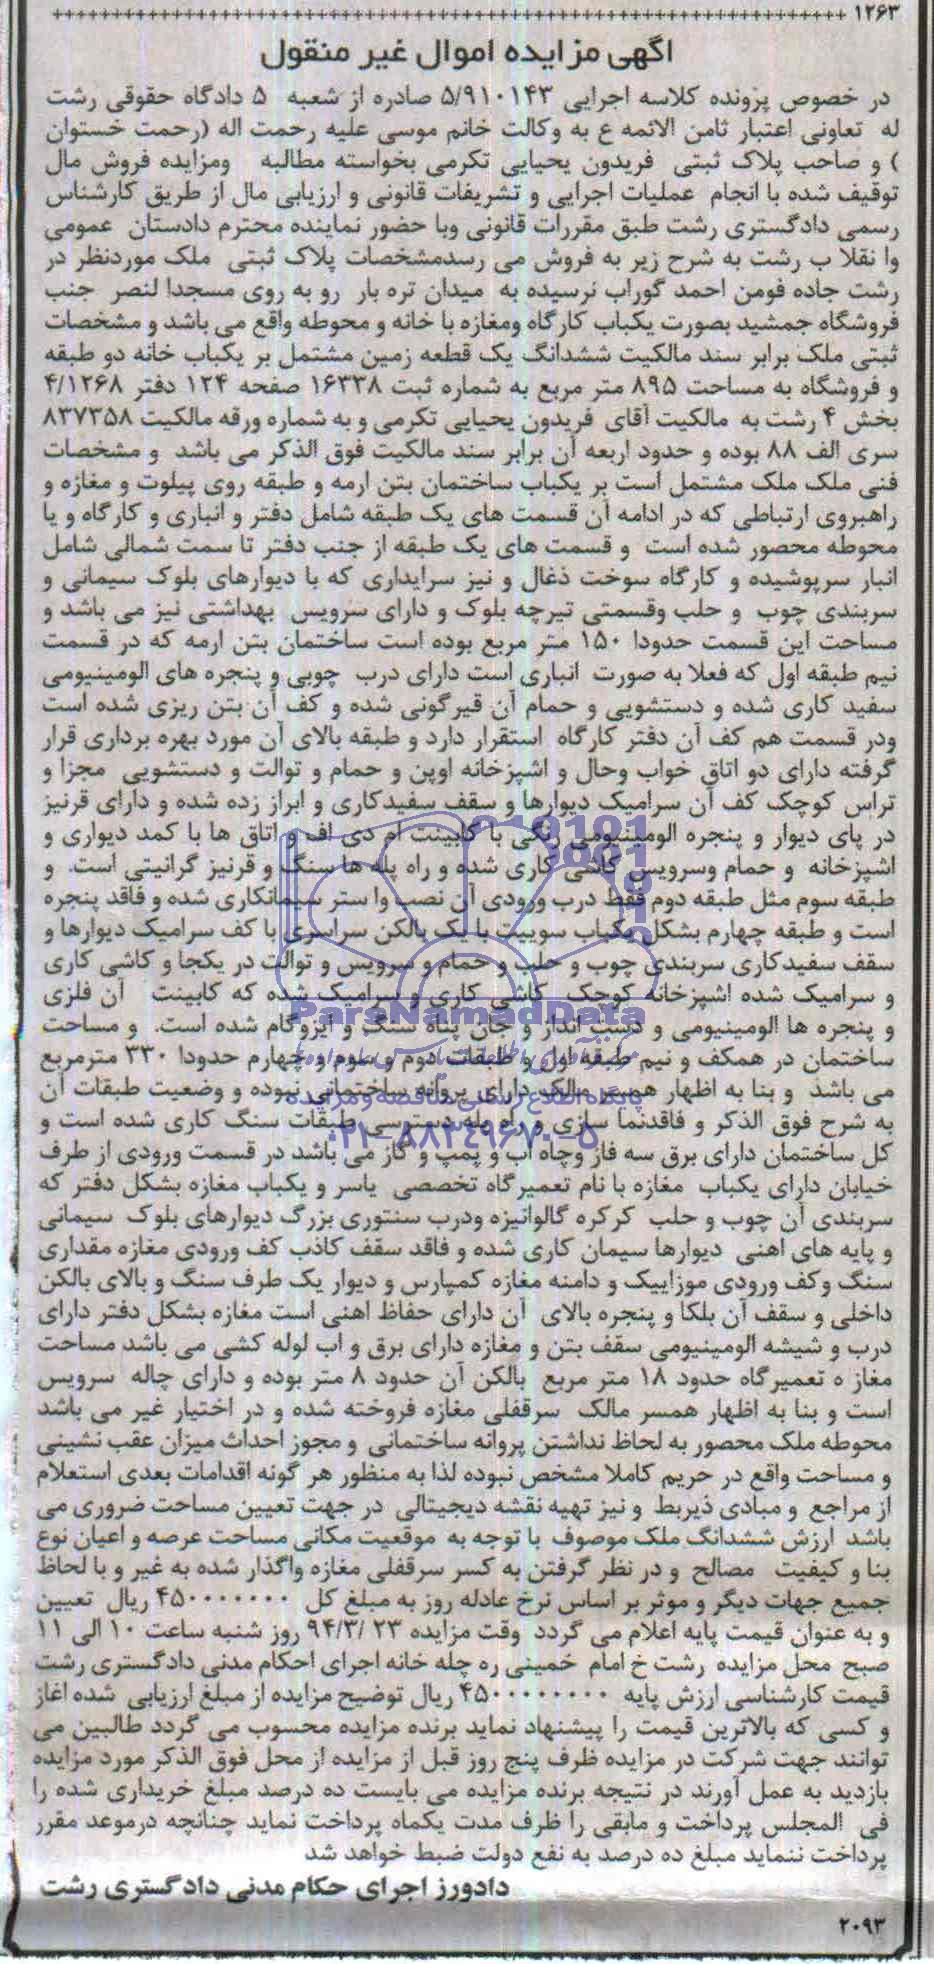 ۱۲۶۳
آگهی مزایده اموال غیر منقول
در خصوص پرونده کلاسه اجرایی ۵/۹۱۰۱۴۳ صادره از شعبه ۵ دادگاه حقوقی رشت
له تعاونی اعتبار ثامن الائمه ع به وکالت خانم موسی علیه رحمت اله (رحمت خستوان
) و صاحب پلاک ثبتی فریدون یحیایی تکرمی بخواسته مطالبه ومزایده فروش مال
توقیف شده با انجام عملیات اجرایی و تشریفات قانونی و ارزیابی مال از طریق کارشناس
رسمی دادگستری رشت طبق مقررات قانونی وبا حضور نماینده محترم دادستان عمومی
وا نقلا ب رشت به شرح زیر به فروش می رسدمشخصات پلاک ثبتی ملک موردنظر در
رشت جاده فومن احمد گوراب نرسیده به میدان تره بار رو به روی مسجدا لنصر جنب
فروشگاه جمشید بصورت یکباب کارگاه ومغازه با خانه و محوطه واقع می باشد و مشخصات
ثبتی ملک برابر سند مالکیت ششدانگ یک قطعه زمین مشتمل بر یکباب خانه دو طبقه
و فروشگاه به مساحت ۸۹۵ متر مربع به شماره ثبت ۱۶۳۳۸ صفحه ۱۲۴ دفتر ۴/۱۲۶۸
بخش ۴ رشت به مالکیت آقای فریدون یحیایی تکرمی و به شماره ورقه مالکیت ۸۳۷۳۵۸
سری الف ۸۸ بوده و حدود اربعه آن برابر سند مالکیت فوق الذکر می باشد و مشخصات
فنی ملک ملک مشتمل است بر یکباب ساختمان بتن ارمه و طبقه روی پیلوت و مغازه و
راهبروی ارتباطی که در ادامه آن قسمت های یک طبقه شامل دفتر و انباری و کارگاه و یا
محوطه محصور شده است و قسمت های یک طبقه از جنب دفتر تا سمت شمالی شامل
انبار سرپوشیده و کارگاه سوخت ذغال و نیز سرایداری که با دیوارهای بلوک سیمانی و
سربندی چوب و حلب وقسمتی تیرچه بلوک و دارای سرویس بهداشتی نیز می باشد و
مساحت این قسمت حدودا ۱۵۰ متر مربع بوده است ساختمان بتن ارمه که در قسمت
نیم طبقه اول که فعلا به صورت انباری است دارای درب چوبی و پنجره های الومینیومی
سفید کاری شده و دستشویی و حمام آن قیرگونی شده و کف آن بتن ریزی شده است
ودر قسمت هم کف آن دفتر کارگاه استقرار دارد و طبقه بالای آن مورد بهره برداری قرار
گرفته دارای دو اتاق خواب وحال و اشپزخانه اوپن و حمام و توالت و دستشویی مجزا و
تراس کوچک کف آن سرامیک دیوارها و سقف سفیدکاری و ابراز زده شده و دارای قرنیز
در پای دیوار و پنجره الومینیومی رنگی با کابینت ام دی اف و اتاق ها با کمد دیواری و
اشپزخانه و حمام وسرویس کاشی کاری شده و راه پله ها سنگ و قرنیز گرانیتی است. و
طبقه سوم مثل طبقه دوم فقط درب ورودی آن نصب وا ستر سیمانکاری شده و فاقد پنجره
است و طبقه چهارم بشکل یکباب سوییت با یک بالکن سراسری با کف سرامیک دیوارها و
سقف سفیدکاری سربندی چوب و حلب و حمام و سرویس و توالت در یکجا و کاشی کاری
و سرامیک شده اشپزخانه کوچک کاشی کاری و سرامیک شده که کابینت آن فلزی
و پنجره ها الومینیومی و دست انداز و جان پناه سنگ و ایزوگام شده است. و مساحت
ساختمان در همکف و نیم طبقه اول و طبقات دوم و سوم و چهارم حدودا ۳۳۰ مترمربع
می باشد و بنا به اظهار همسر مالک دارای پروانه ساختمانی نبوده و وضعیت طبقات آن
به شرح فوق الذکر و فاقدنما سازی و راه پله دسترسی طبقات سنگ کاری شده است و
کل ساختمان دارای برق سه فاز وچاه آب و پمپ و گاز می باشد در قسمت ورودی از طرف
خیابان دارای یکباب مغازه با نام تعمیرگاه تخصصی یاسر و یکباب مغازه بشکل دفتر که
سربندی آن چوب و حلب کرکره گالوانیزه ودرب سنتوری بزرگ دیوارهای بلوک سیمانی
و پایه های اهنی دیوارها سیمان کاری شده و فاقد سقف کاذب کف ورودی مغازه مقداری
سنگ وکف ورودی موزاییک و دامنه مغازه کمپارس و دیوار یک طرف سنگ و بالای بالکن
داخلی و سقف آن بلکا و پنجره بالای آن دارای حفاظ اهنی است مغازه بشکل دفتر دارای
درب و شیشه الومینیومی سقف بتن و مغازه دارای برق و اب لوله کشی می باشد مساحت
مغاز ه تعمیرگاه حدود ۱۸ متر مربع بالکن آن حدود ۸ متر بوده و دارای چاله سرویس
است و بنا به اظهار همسر مالک سرقفلی مغازه فروخته شده و در اختیار غیر می باشد
محوطه ملک محصور به لحاظ نداشتن پروانه ساختمانی و مجوز احداث میزان عقب نشینی
و مساحت واقع در حریم کاملا مشخص نبوده لذا به منظور هر گونه اقدامات بعدی استعلام
از مراجع و مبادی ذیربط و نیز تهیه نقشه دیجیتالی در جهت تعیین مساحت ضروری می
باشد ارزش ششدانگ ملک موصوف با توجه به موقعیت مکانی مساحت عرصه و اعیان نوع
بنا و کیفیت مصالح و در نظر گرفتن به کسر سرقفلی مغازه واگذار شده به غیر و با لحاظ
جمیع جهات دیگر و موثر بر اساس نرخ عادله روز به مبلغ کل ۴۵۰۰۰۰۰۰۰۰ ریال تعیین
و به عنوان قیمت پایه اعلام می گردد وقت مزایده ۹۴/۳/ ۲۳ روز شنبه ساعت ۱۰ الی ۱۱
صبح محل مزایده رشت خ امام خمینی ره چله خانه اجرای احکام مدنی دادگستری رشت
قیمت کارشناسی ارزش پایه ۴۵۰۰۰۰۰۰۰۰ ریال توضیح مزایده از مبلغ ارزیابی شده اغاز
و کسی که بالاترین قیمت را پیشنهاد نماید برنده مزایده محسوب می گردد طالبین می
توانند جهت شرکت در مزایده ظرف پنج روز قبل از مزایده از محل فوق الذکر مورد مزایده
بازدید به عمل آورند در نتیجه برنده مزایده می بایست ده درصد مبلغ خریداری شده را
فی المجلس پرداخت و مابقی را ظرف مدت یکماه پرداخت نماید چنانچه درموعد مقرر
پرداخت ننماید مبلغ ده درصد به نفع دولت ضبط خواهد شد
دادورز اجرای حکام مدنی دادگستری رشت
۲۰۹۳
ParsNamadData
پایگاه اطلاع رسانی مناقصه و مزایده
۰۲۱-۸۸۳۴۹۶۷۰-۵